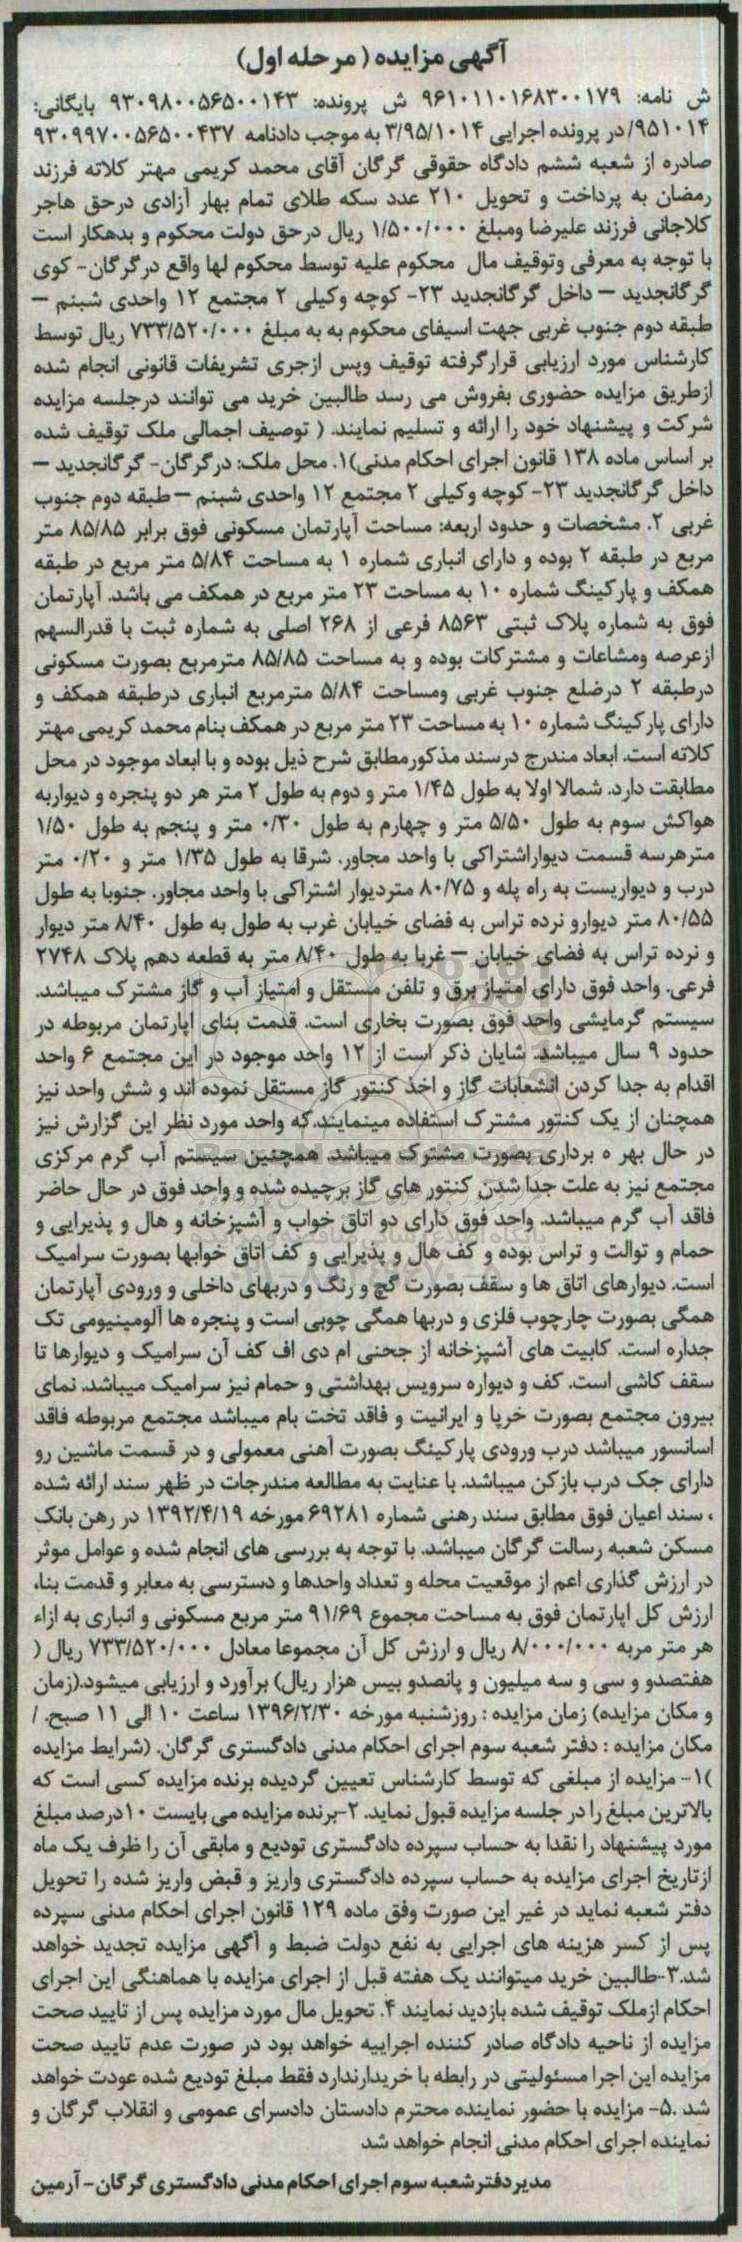 آگهی مزایده ( مرحله اول)
ش نامه: ۹۶۱۰۱۱۰۱۶۸۳۰۰۱۷۹ ش پرونده: ۹۳۰۹۸۰۰۵۶۵۰۰۱۴۳ بایگانی:
۹۵۱۰۱۴/ در پرونده اجرایی ۳/۹۵/۱۰۱۴ به موجب دادنامه ۹۳۰۹۹۷۰۰۵۶۵۰۰۴۳۷
صادره از شعبه ششم دادگاه حقوقی گرگان آقای محمد کریمی مهتر کلاته فرزند
رمضان به پرداخت و تحویل ۲۱۰ عدد سکه طلای تمام بهار آزادی درحق هاجر
کلاجانی فرزند علیرضا ومبلغ ۱/۵۰۰/۰۰۰ ریال درحق دولت محکوم و بدهکار است
با توجه به معرفی وتوقیف مال محکوم علیه توسط محکوم لها واقع درگرگان- کوی
گرگانجدید – داخل گرگانجدید ۲۳- کوچه وکیلی ۲ مجتمع ۱۲ واحدی شبنم –
طبقه دوم جنوب غربی جهت اسیفای محکوم به به مبلغ ۷۳۳/۵۲۰/۰۰۰ ریال توسط
کارشناس مورد ارزیابی قرارگرفته توقیف وپس ازجری تشریفات قانونی انجام شده
ازطریق مزایده حضوری بفروش می رسد طالبین خرید می توانند درجلسه مزایده
شرکت و پیشنهاد خود را ارائه و تسلیم نمایند. ( توصیف اجمالی ملک توقیف شده
بر اساس ماده ۱۳۸ قانون اجرای احکام مدنی)۱. محل ملک: درگرگان- گرگانجدید –
داخل گرگانجدید ۲۳- کوچه وکیلی ۲ مجتمع ۱۲ واحدی شبنم – طبقه دوم جنوب
غربی ۲. مشخصات و حدود اربعه: مساحت آپارتمان مسکونی فوق برابر ۸۵/۸۵ متر
مربع در طبقه ۲ بوده و دارای انباری شماره ۱ به مساحت ۵/۸۴ متر مربع در طبقه
همکف و پارکینگ شماره ۱۰ به مساحت ۲۳ متر مربع در همکف می باشد. آپارتمان
فوق به شماره پلاک ثبتی ۸۵۶۳ فرعی از ۲۶۸ اصلی به شماره ثبت با قدرالسهم
ازعرصه ومشاعات و مشترکات بوده و به مساحت ۸۵/۸۵ مترمربع بصورت مسکونی
درطبقه ۲ درضلع جنوب غربی ومساحت ۵/۸۴ مترمربع انباری درطبقه همکف و
دارای پارکینگ شماره ۱۰ به مساحت ۲۳ متر مربع در همکف بنام محمد کریمی مهتر
کلاته است. ابعاد مندرج درسند مذکورمطابق شرح ذیل بوده و با ابعاد موجود در محل
مطابقت دارد. شمالا اولا به طول ۱/۴۵ متر و دوم به طول ۲ متر هر دو پنجره و دیواربه
هواکش سوم به طول ۵/۵۰ متر و چهارم به طول ۰/۳۰ متر و پنجم به طول ۱/۵۰
مترهرسه قسمت دیواراشتراکی با واحد مجاور. شرقا به طول ۱/۳۵ متر و ۰/۲۰ متر
درب و دیواریست به راه پله و ۸۰/۷۵ متردیوار اشتراکی با واحد مجاور. جنوبا به طول
۸۰/۵۵ متر دیوارو نرده تراس به فضای خیابان غرب به طول به طول ۸/۴۰ متر دیوار
و نرده تراس به فضای خیابان – غربا به طول ۸/۴۰ متر به قطعه دهم پلاک ۲۷۴۸
فرعی. واحد فوق دارای امتیاز برق و تلفن مستقل و امتیاز آب و گاز مشترک میباشد.
سیستم گرمایشی واحد فوق بصورت بخاری است. قدمت بنای اپارتمان مربوطه در
حدود ۹ سال میباشد. شایان ذکر است از ۱۲ واحد موجود در این مجتمع ۶ واحد
اقدام به جدا کردن انشعابات گاز و اخذ کنتور گاز مستقل نموده اند و شش واحد نیز
همچنان از یک کنتور مشترک استفاده مینمایند.که واحد مورد نظر این گزارش نیز
در حال بهر ه برداری بصورت مشترک میباشد. همچنین سیستم آب گرم مرکزی
مجتمع نیز به علت جدا شدن کنتور های گاز برچیده شده و واحد فوق در حال حاضر
فاقد آب گرم میباشد. واحد فوق دارای دو اتاق خواب و آشپزخانه و هال و پذیرایی و
حمام و توالت و تراس بوده و کف هال و پذیرایی و کف اتاق خوابها بصورت سرامیک
است. دیوارهای اتاق ها و سقف بصورت گچ و رنگ و دربهای داخلی و ورودی آپارتمان
همگی بصورت چارچوب فلزی و دربها همگی چوبی است و پنجره ها آلومینیومی تک
جداره است. کابیت های آشپزخانه از جحنی ام دی اف کف آن سرامیک و دیوارها تا
سقف کاشی است. کف و دیواره سرویس بهداشتی و حمام نیز سرامیک میباشد. نمای
بیرون مجتمع بصورت خرپا و ایرانیت و فاقد تخت بام میباشد مجتمع مربوطه فاقد
اسانسور میباشد درب ورودی پارکینگ بصورت آهنی معمولی و در قسمت ماشین رو
دارای جک درب بازکن میباشد. با عنایت به مطالعه مندرجات در ظهر سند ارائه شده
، سند اعیان فوق مطابق سند رهنی شماره ۶۹۲۸۱ مورخه ۱۳۹۲/۴/۱۹ در رهن بانک
مسکن شعبه رسالت گرگان میباشد. با توجه به بررسی های انجام شده و عوامل موثر
در ارزش گذاری اعم از موقعیت محله و تعداد واحدها و دسترسی به معابر و قدمت بنا،
ارزش کل اپارتمان فوق به مساحت مجموع ۹۱/۶۹ متر مربع مسکونی و انباری به ازاء
هر متر مربه ۸/۰۰۰/۰۰۰ ریال و ارزش کل آن مجموعا معادل ۷۳۳/۵۲۰/۰۰۰ ریال (
هفتصدو و سی و سه میلیون و پانصدو بیس هزار ریال) برآورد و ارزیابی میشود.(زمان
و مکان مزایده) زمان مزایده : روزشنبه مورخه ۱۳۹۶/۲/۳۰ ساعت ۱۰ الی ۱۱ صبح. /
مکان مزایده : دفتر شعبه سوم اجرای احکام مدنی دادگستری گرگان. (شرایط مزایده
)۱- مزایده از مبلغی که توسط کارشناس تعیین گردیده برنده مزایده کسی است که
بالاترین مبلغ را در جلسه مزایده قبول نماید. ۲-برنده مزایده می بایست ۱۰درصد مبلغ
مورد پیشنهاد را نقدا به حساب سپرده دادگستری تودیع و مابقی آن را ظرف یک ماه
ازتاریخ اجرای مزایده به حساب سپرده دادگستری واریز و قبض واریز شده را تحویل
دفتر شعبه نماید در غیر این صورت وفق ماده ۱۲۹ قانون اجرای احکام مدنی سپرده
پس از کسر هزینه های اجرایی به نفع دولت ضبط و آگهی مزایده تجدید خواهد
شد.۳-طالبین خرید میتوانند یک هفته قبل از اجرای مزایده با هماهنگی این اجرای
احکام ازملک توقیف شده بازدید نمایند ۴. تحویل مال مورد مزایده پس از تایید صحت
مزایده از ناحیه دادگاه صادر کننده اجراییه خواهد بود در صورت عدم تایید صحت
مزایده این اجرا مسئولیتی در رابطه با خریدارندارد فقط مبلغ تودیع شده عودت خواهد
شد .۵- مزایده با حضور نماینده محترم دادستان دادسرای عمومی و انقلاب گرگان و
نماینده اجرای احکام مدنی انجام خواهد شد
مدیردفترشعبه سوم اجرای احکام مدنی دادگستری گرگان- آرمین